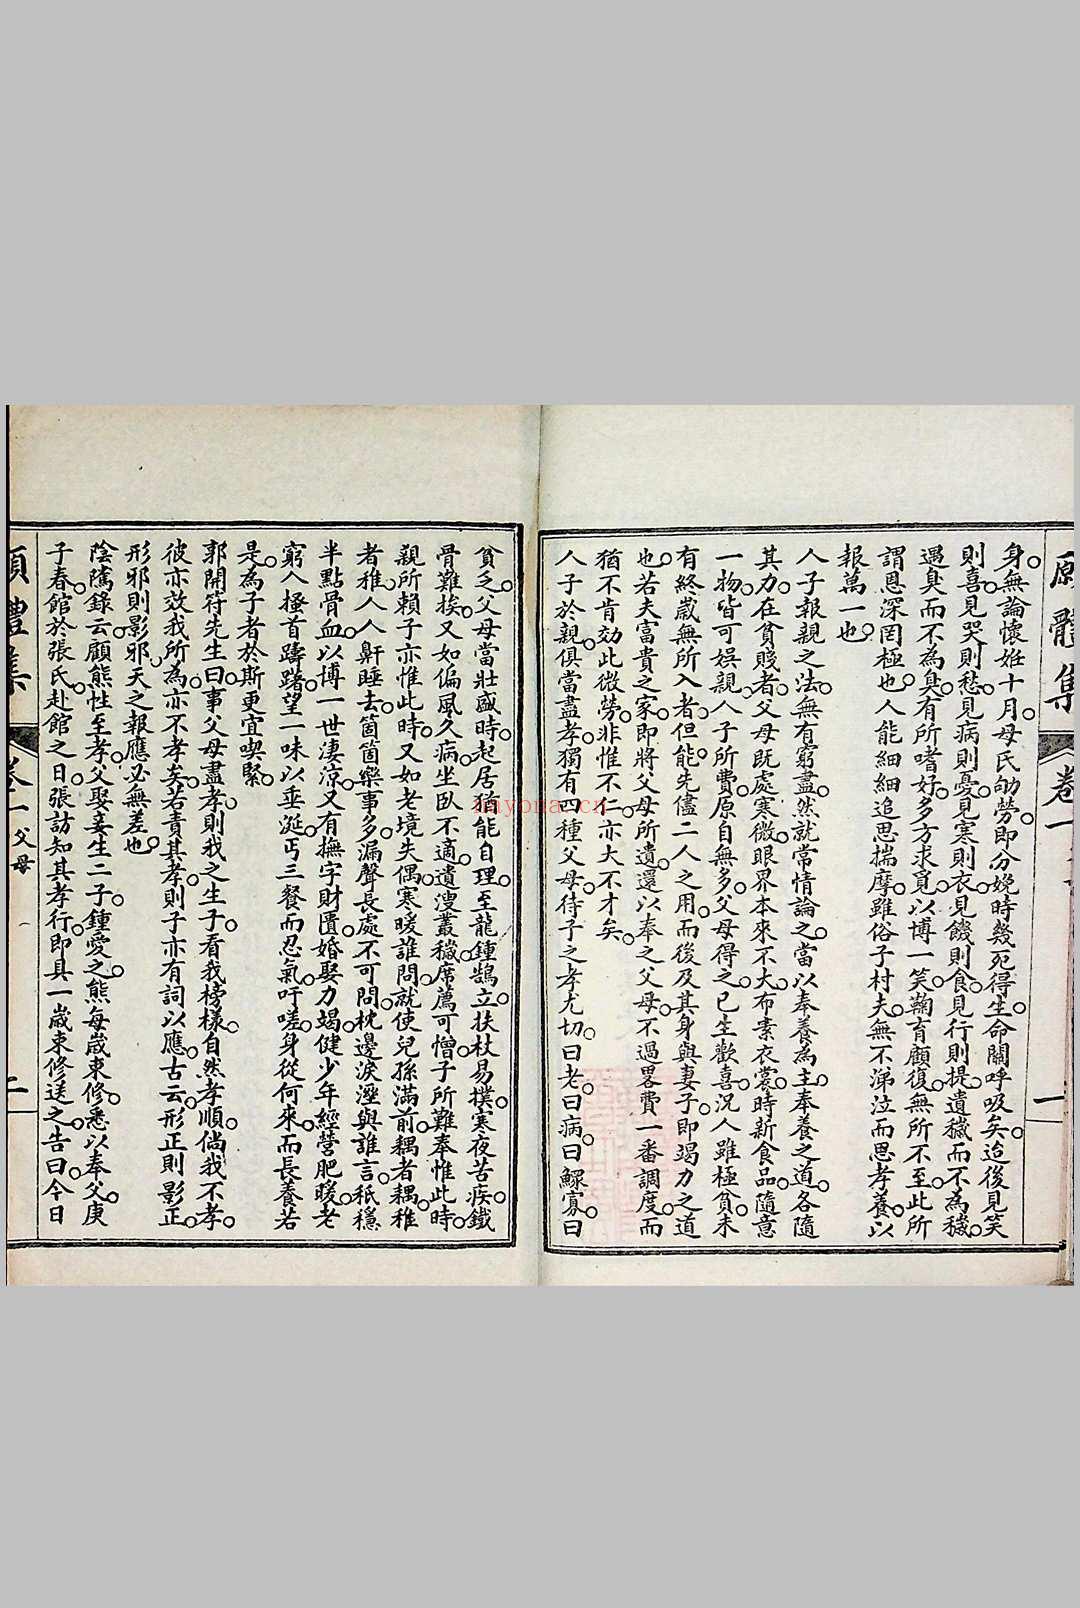 身。無論懷姙十月。母氏劬勞。即分娩時幾死得生。命關呼吸矣。迨後見笑
則喜。見哭則愁。見病則憂。見寒則衣。見饑則食。見行則提。遺穢而不為穢。
遇臭而不為臭。有所嗜好。多方求覓。以博一笑。鞠育顧復。無所不至。此所
謂恩深罔極也。人能細細追思揣摩。雖俗子村夫。無不涕泣而思孝養。以
報萬一也。
人子報親之法。無有窮盡。然就常情論之。當以奉養為主。奉養之道。各隨
其力。在貧賤者。父母既處寒微。眼界本來不大。布素衣裳。時新食品。隨意
一物。皆可娛親。人子所費。原自無多。父母得之。已生歡喜。況人雖極貧。未
有終歲無所入者。但能先儘二人之用。而後及其身與妻子。即竭力之道
也。若夫富貴之家。即將父母所遺。還以奉之父母。不過畧費一番調度。而
猶不肯効此微勞。非惟不仁。亦大不才矣。
人子於親。俱當盡孝。獨有四種父母。待子之孝尤切。曰老。曰病。曰鰥寡。曰
貧乏。父母當壯盛時。起居猶能自理。至龍鍾鵠立。扶杖易撲。寒夜苦疾。鐵
骨難挨。又如偏風久病。坐臥不適。遺溲叢穢。席薦可憎。子所難奉惟此時。
親所賴子亦惟此時。又如老境失偶。寒暖誰問。就使兒孫滿前。耦者耦。稚
者稚。人人鼾睡去。箇箇樂事多。漏聲長處不可問。枕邊淚溼與誰言。秖穩
半點骨血。以博一世凄涼。又有撫字財匱。婚娶力竭。健少年經營肥暖。老
窮人搔首躊躇。望一味以垂涎。丐三餐而忍氣。吁嗟。身從何來。而長養若
是。為子者於斯更宜喫緊。
郭開符先生曰。事父母盡孝。則我之生子。看我榜樣。自然孝順。倘我不孝。
彼亦效我所為。亦不孝矣。若責其孝。則子亦有詞以應。古云。形正則影正。
形邪則影邪。天之報應。必無差也。
陰隲錄云。顧熊性至孝。父娶妾生二子。鍾愛之。熊每歲束修。悉以奉父。庚
子春。館於張氏。赴館之日。張訪知其孝行。即具一歲束修送之。告曰。今日
卷一
一
卷一
父母
二